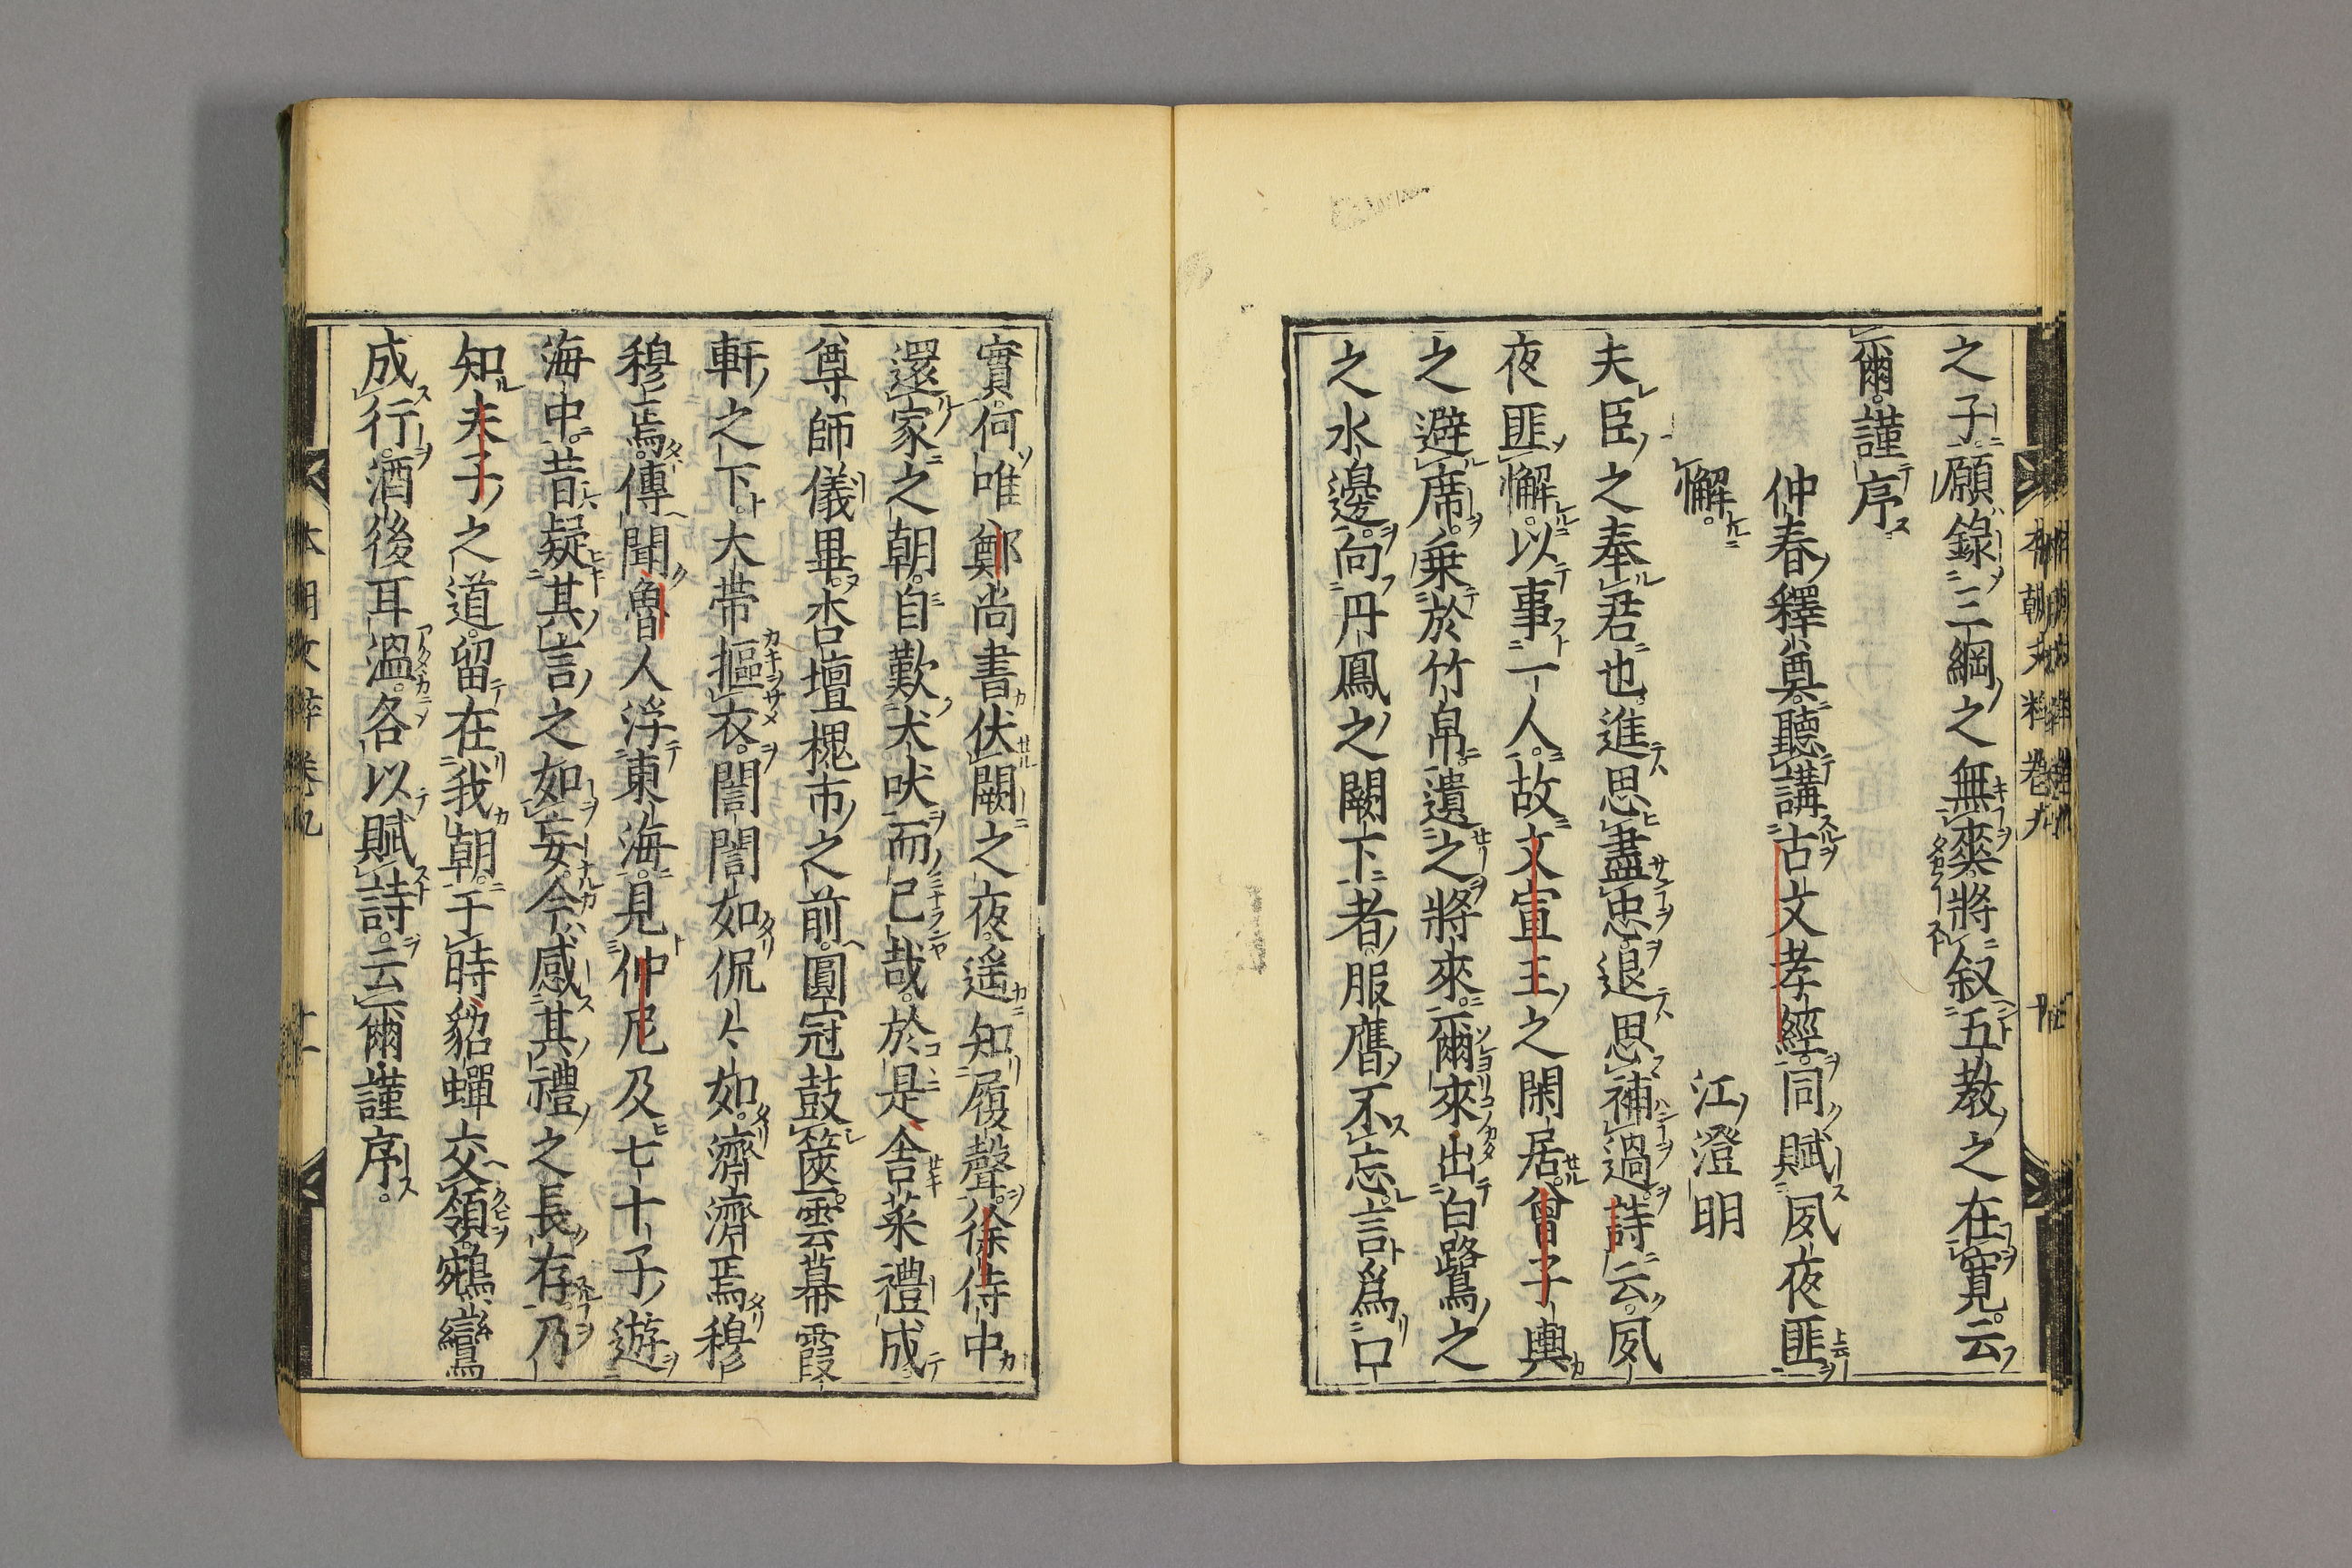 之子願錄三綱之無爽將叙五教之在寛云
爾謹序
仲春釋奠聽講古文孝經同賦夙夜匪
懈
江澄明
夫臣之奉君也進思盡忠退思補過詩云夙
夜匪懈以事一人故文宣王之閑居曾子輿
之避席乗於竹帛遺之將來爾來出白鷺之
之水邊向丹鳳之闕下者服膺不忘言爲口
實何唯鄭尚書伏闕之夜遥知履聲徐侍中
還家之朝自歎犬吠而已哉於是舎菜禮成
尊師儀畢杏壇槐市之前圓冠鼓篋雲幕霞
軒之下大帯摳衣誾誾如侃々如濟濟焉穆
穆焉傳聞魯人浮東海見仲尼及七十子遊
海中昔疑其言之如妄今感其禮之長存乃
知夫子之道留在我朝于時貂蟬交領鵷鸞
成行酒後耳温各以賦詩云爾謹序
本朝文粹卷九